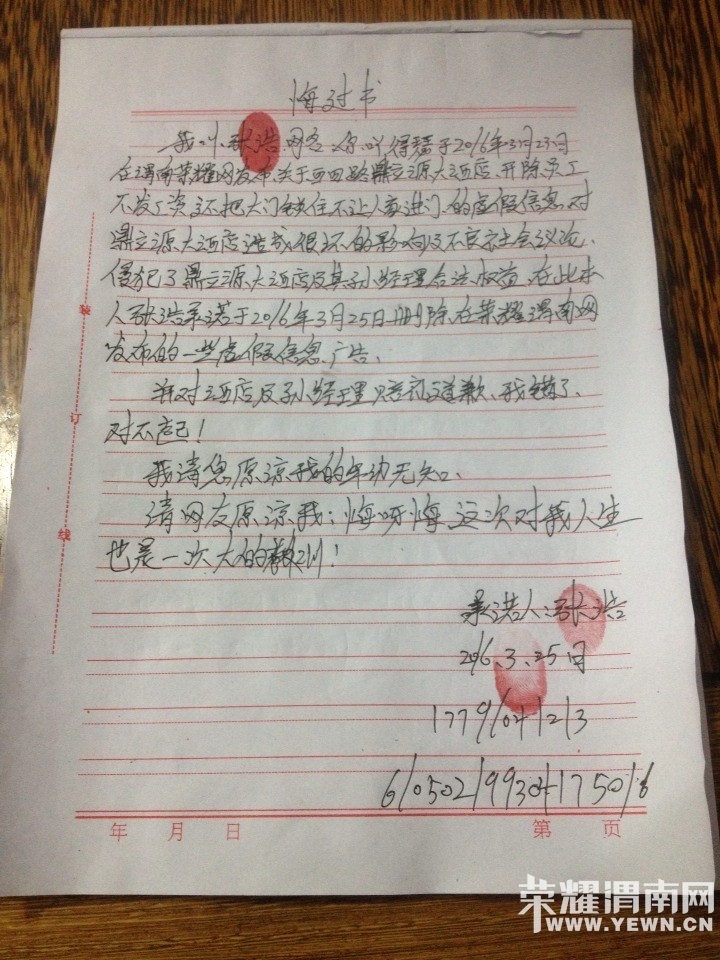 悔过书
我叫张浩,网名 你叫得瑟于2016年3月23日
在渭南荣耀网发布关于西四路鼎立源大酒店、开除员工
不发工资还把大门锁住不让人家进门、的虚假信息、对
鼎立源大酒店造成很坏的影响及不良社会议论、
侵犯了鼎立源大酒店及其孙经理合法权益、在此本
人张浩承诺于2016年3月25日删除、在荣耀渭南网
发布的一些虚假信息、广告、
并对酒店及孙经理赔礼道歉、我错了、
对不起!
我请您原谅我的年幼无知、
请网友原谅我;悔呀悔 这次对我人生
也是一次大的教训!
承诺人:张浩
2016.3.25日
装
订
线
年 月 日
第 页
荣耀渭南网
WWW.YEWN.CN